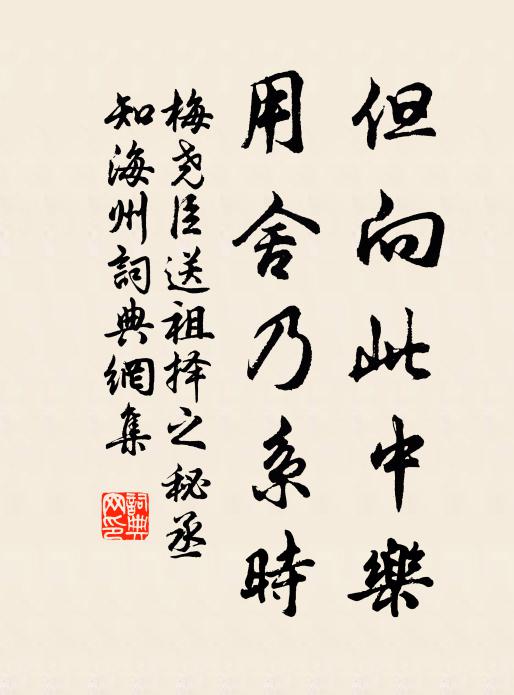 但向此中樂
用舍乃系時
梅尧臣送祖择之秘丞
知海州詞典網集
詞典網印